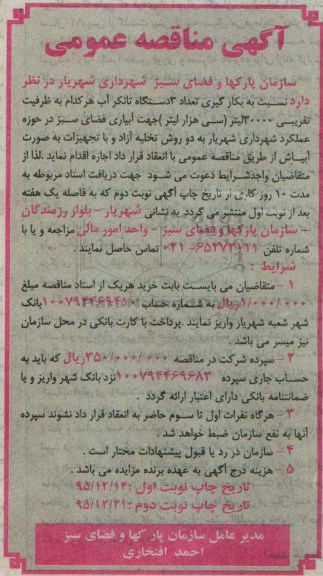 آگهی مناقصه عمومی
سازمان پارکها و فضای سبز شهرداری شهریار در نظر
دارد نسبت به بکار گیری تعداد ۳دستگاه تانکر آب هرکدام به ظرفیت
تقریبی ۳۰۰۰۰لیتر (سی هزار لیتر )جهت آبیاری فضای سبز در حوزه
عملکرد شهرداری شهریار به دو روش تخلیه آزاد و با تجهیزات به صورت
آبپاش از طریق مناقصه عمومی با انعقاد قرار داد اجاره اقدام نماید .لذا از
متقاضیان واجدشرایط دعوت می شود جهت دریافت اسناد مربوطه به
مدت ۱۰ روز کاری از تاریخ چاپ آگهی نوبت دوم که به فاصله یک هفته
بعد از نوبت اول منتشر می گردد به نشانی شهریار – بلوار رزمندگان
– سازمان پارکها و فضای سبز – واحد امور مالی مراجعه و یا با
شماره تلفن ۶۵۲۷۳۱۱۱ -۰۲۱ تماس حاصل نمایند .
شرایط :
۱ – متقاضیان می بایست بابت خرید هریک از اسناد مناقصه مبلغ
۱/۰۰۰/۰۰۰ریال به شماره حساب بانک
شهر شعبه شهریار واریز نمایند .پرداخت با کارت بانکی در محل سازمان
نیز میسر می باشد .
۲– سپرده شرکت در مناقصه ۳۵۰/۰۰۰/۰۰۰ریال که باید به
حساب جاری سپرده ۱۰۰۷۹۴۴۶۹۶۸۳نزد بانک شهر واریز و یا
ضمانتنامه بانکی دارای اعتبار ارائه گردد .
۳ – هرگاه نفرات اول تا سوم حاضر به انعقاد قرار داد نشوند سپرده
آنها به نفع سازمان ضبط خواهد شد .
۴ – سازمان در رد یا قبول پیشنهادات مختار است .
۵ – هزینه درج آگهی به عهده برنده مزایده می باشد .
تاریخ چاپ نوبت اول :۹۵/۱۲/۱۴
تاریخ چاپ نوبت دوم :۹۵/۱۲/۲۱
مدیر عامل سازمان پارکها و فضای سبز
احمد افتخاری